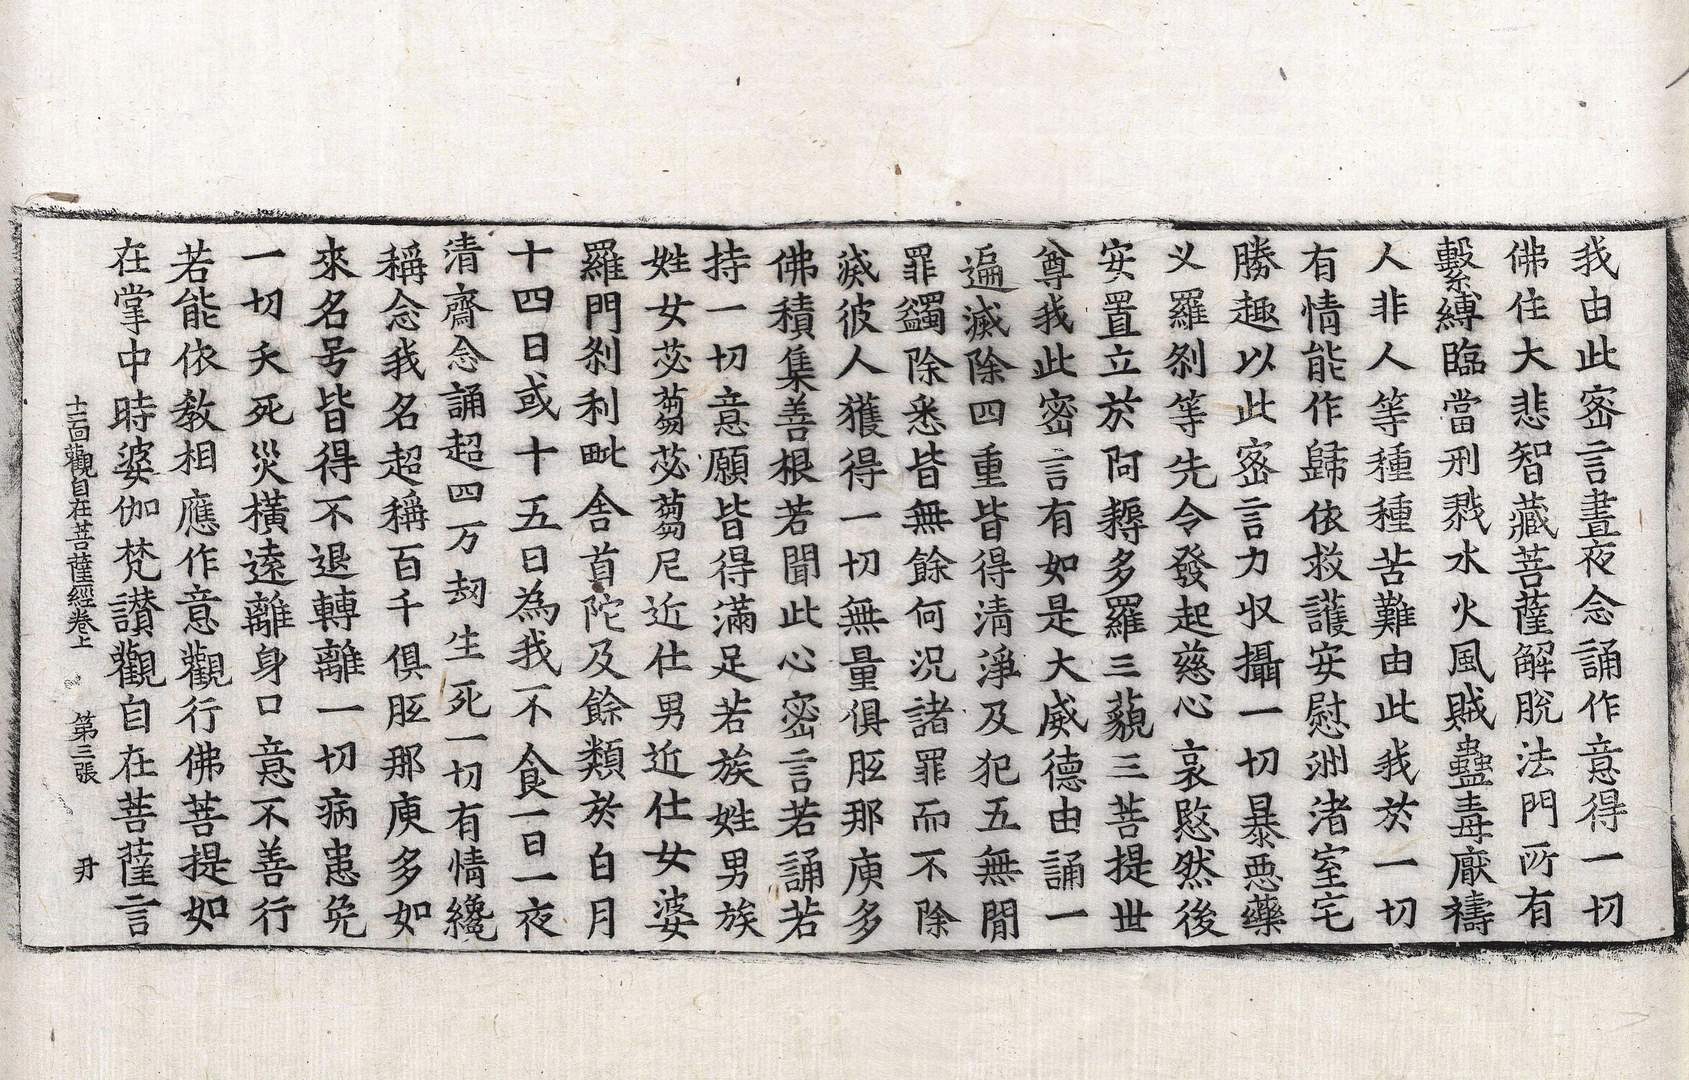 我由此密言晝夜念誦作意得一切
佛住大悲智藏菩薩解脫法門所有
繫縛臨當刑戮水火風賊蠱毒厭禱
人非人等種種苦難由此我於一切
有情能作歸依救護安慰洲渚室宅
勝趣以此密言力収攝一切暴惡藥
义羅刹等先令發起慈心哀愍然後
安置立於阿耨多羅三藐三菩提世
尊我此密言有如是大威德由誦一
遍滅除四重皆得清淨及犯五無間
罪蠲除悉皆無餘何況諸罪而不除
滅彼人獲得一切無量俱胝那庾多
佛積集善根若聞此心密言若誦若
持一切意願皆得滿足若族姓男族
姓女苾蒭苾蒭尼近仕男近仕女婆
羅門刹利毗舍首陀及餘類於白月
十四日或十五日為我不食一日一夜
清齋念誦超四万劫生死一切有情纔
稱念我名超稱百千俱胝那庾多如
來名号皆得不退轉離一切病患免
一切夭死災橫遠離身口意不善行
若能依教相應作意觀行佛菩提如
在掌中時婆伽梵讃觀自在菩薩言
十一面觀自在菩薩經卷上　第三張　尹